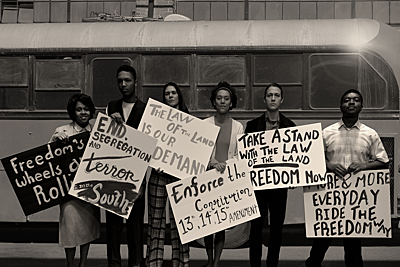 Freedom's
wheels are
Rolling
END
SEGREGATION
and
terror
in the
South
THE LAW
OF THE LAND
IS OUR
DEMAND
Enforce the
Constitution
13th, 14th & 15th
AMENDMENT
TAKE A STAND
WITH THE LAW
OF THE LAND
FREEDOM NOW
MORE & MORE
EVERYDAY
RIDE THE
FREEDOM WAY